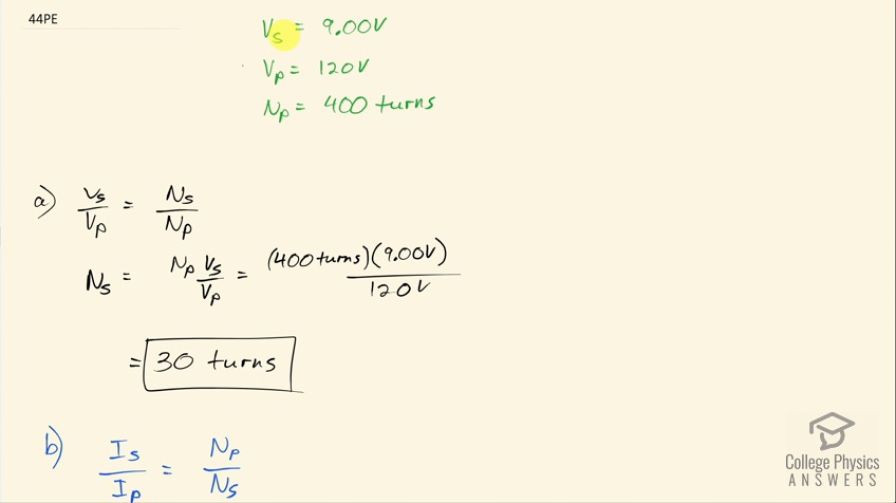 44PE
Vs = 9.00V
Vp = 120V
Np = 400 turns
a) Vs/Vp = Ns/Np
Ns = Np Vs/Vp = (400 turns)(9.00V)/120V
= 30 turns
b) Is/Ip = Np/Ns
College Physics
ANSWERS